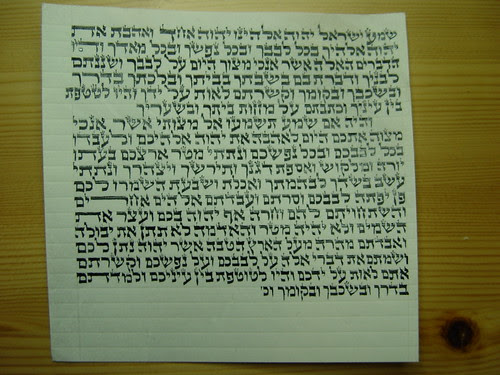 שמע ישראל יהוה אלהינו יהוה אחד ואהבת את
יהוה אלהיך בכל לבבך ובכל נפשך ובכל מאדך והיו
הדברים האלה אשר אנכי מצוך היום על לבבך ושננתם
לבניך ודברת בם בשבתך בביתך ובלכתך בדרך
ובשכבך ובקומך וקשרתם לאות על ידך והיו לטטפת
בין עיניך וכתבתם על מזוזות ביתך ובשעריך
והיה אם שמע תשמעו אל מצותי אשר אנכי
מצוה אתכם היום לאהבה את יהוה אלהיכם ולעבדו
בכל לבבכם ובכל נפשכם ונתתי מטר ארצכם בעתו
יורה ומלקוש ואספת דגנך ותירשך ויצהרך ונתתי
עשב בשדך לבהמתך ואכלת ושבעת השמרו לכם
פן יפתה לבבכם וסרתם ועבדתם אלהים אחרים
והשתחויתם להם וחרה אף יהוה בכם ועצר את
השמים ולא יהיה מטר והאדמה לא תתן את יבולה
ואבדתם מהרה מעל הארץ הטבה אשר יהוה נתן לכם
ושמתם את דברי אלה על לבבכם ועל נפשכם וקשרתם
אתם לאות על ידכם והיו לטוטפת בין עיניכם ולמדתם
בדרך ובשכבך ובקומך וכ'